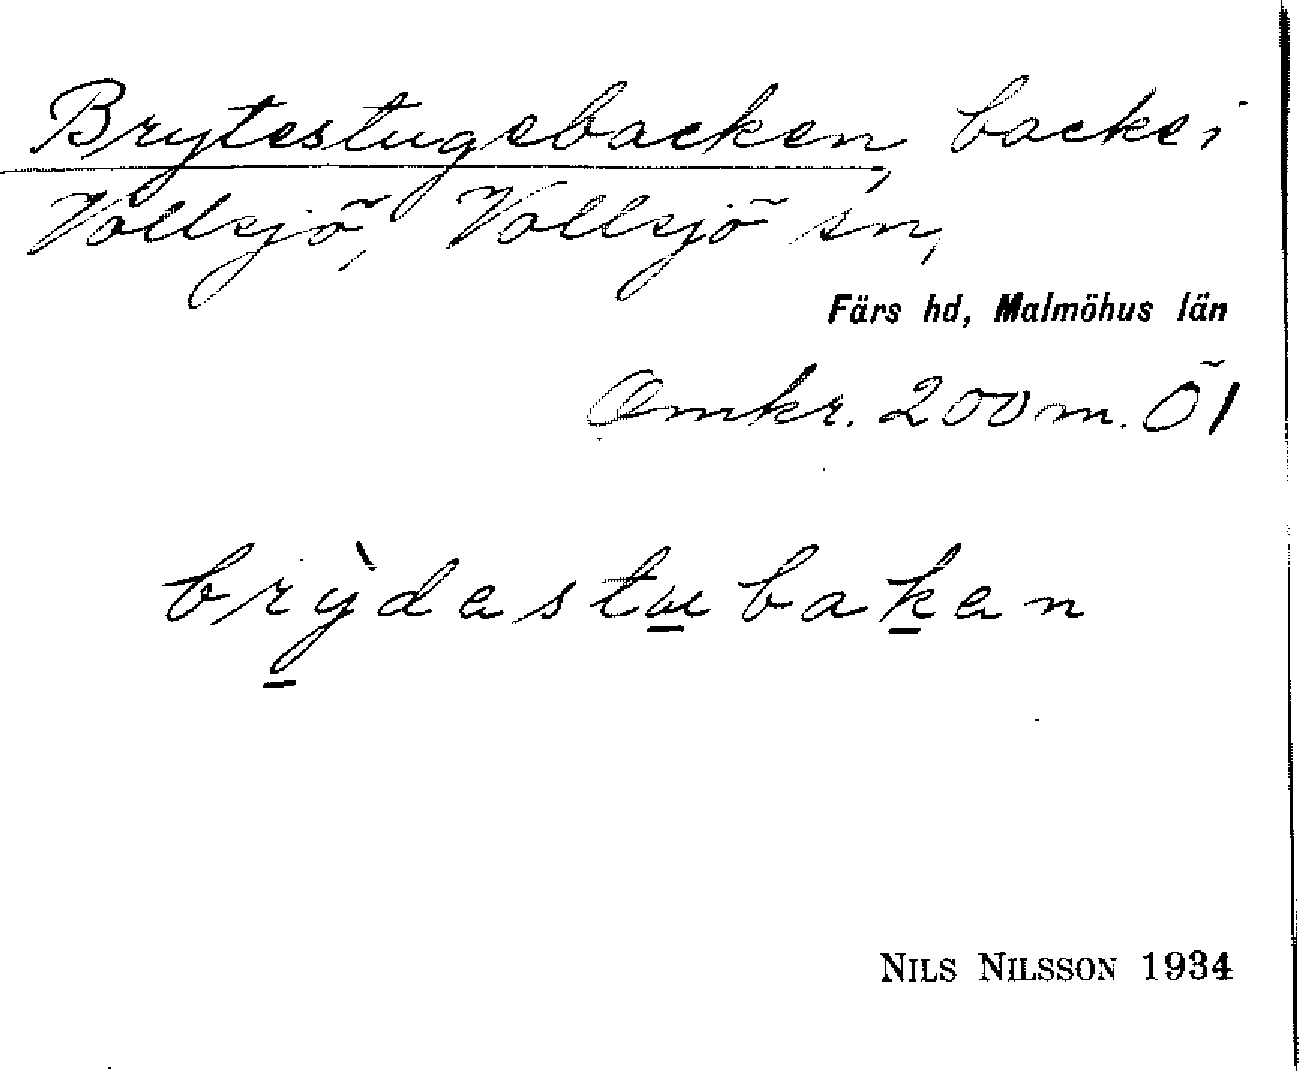 Brytestugebacken, backe i
Vollsjö, Vollsjö sn,
Färs hd, Malmöhus län
Omkr. 200 m. Öl
brỳdastuebaken
NILS NILSSON 1934